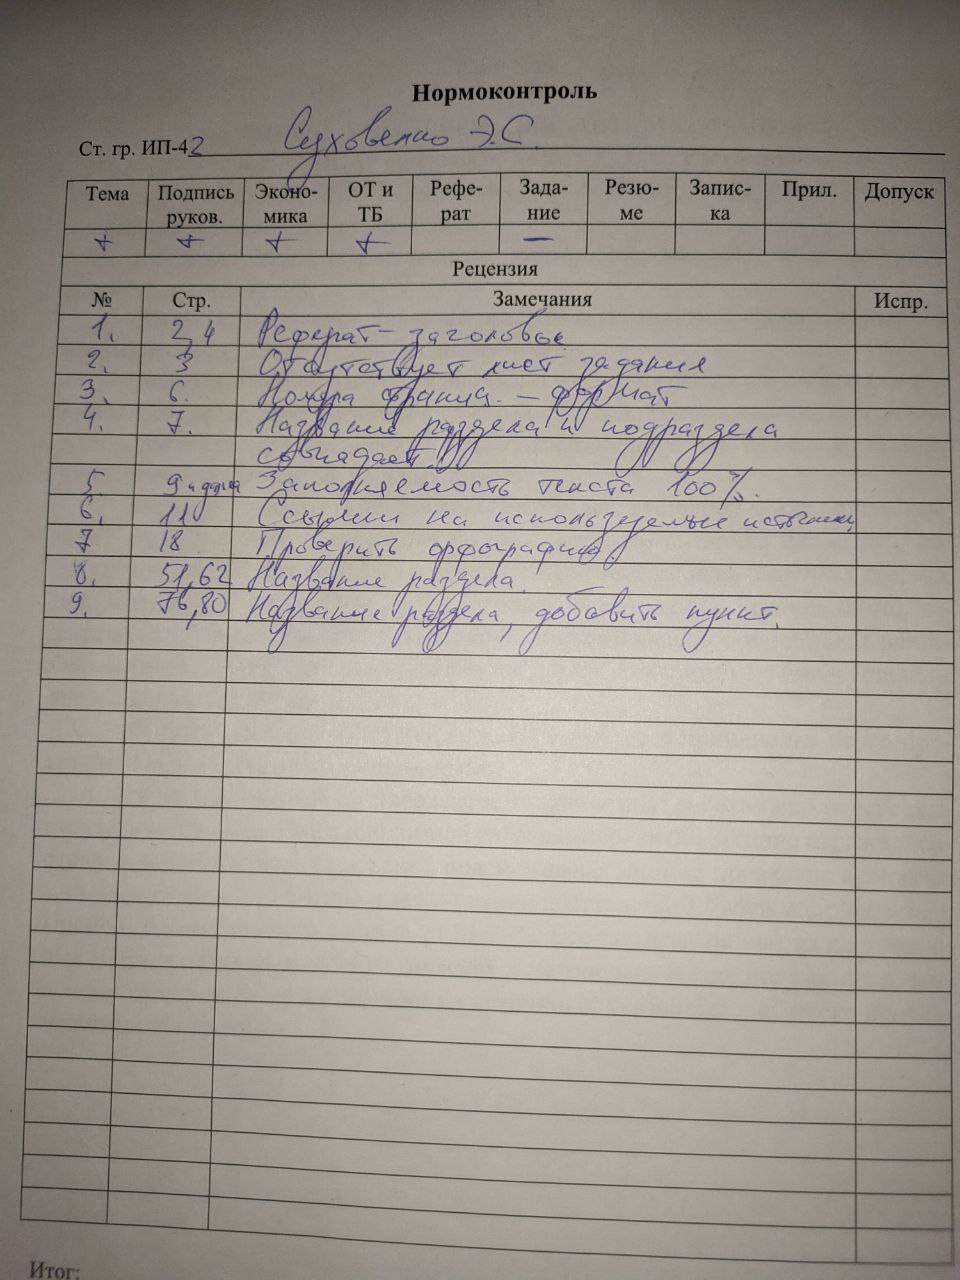 Нормоконтроль
Ст. гр. ИП-42 Суховенко Э.С.
Тема Подпись руков. Эконо-мика ОТ и ТБ Рефе-рат Зада-ние Резю-ме Запис-ка Прил. Допуск
+ + + + —
Рецензия
№ Стр. Замечания Испр.
1. 2,4 Реферат – заголовок
2. 3 Отсутствует лист задания
3. 6. Номера страниц. – формат
4. 7. Название раздела и подраздела
совпадает!
5. 9 и далее Заполняемость текста 100%.
6. 11 Ссылки на используемые источники
7 18 Проверить орфографию
8. 51,62 Название раздела.
9. 76,80 Название раздела, добавить пункт.
Итог: